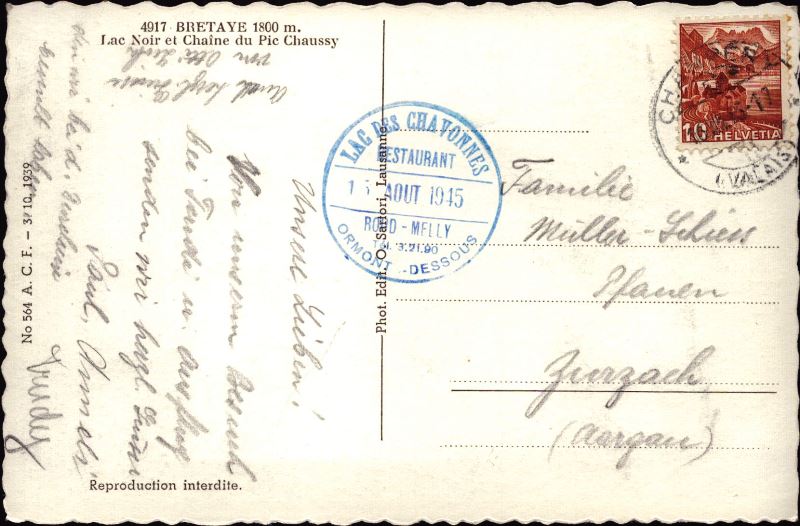 4917 BRETAYE 1800 m.
Lac Noir et Chaîne du Pic Chaussy
No 564 A. C. F. – 3/10. 1939
Phot. Edit. O. Sartori, Lausanne
Reproduction interdite.
LAC DES CHAVONNES
RESTAURANT
AOUT 1945
ROUD - MELLY
Tél. 3.21.90
ORMONT - DESSOUS
10 HELVETIA
(VALAIS)
Familie
Müller-Schiess
Pfauen
Zurzach
(Aargau)
Unsere Lieben!
Von unserm Besuch
bei Trudi u. Ausflug
senden wir herzl. Grüsse
Paul, Anneli
Trudy
Auch herzl. Grüsse
von